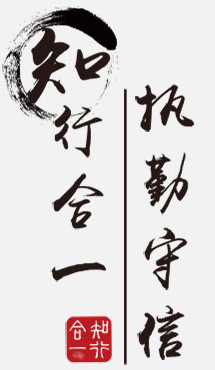 执勤守信
知行合一
知行合一